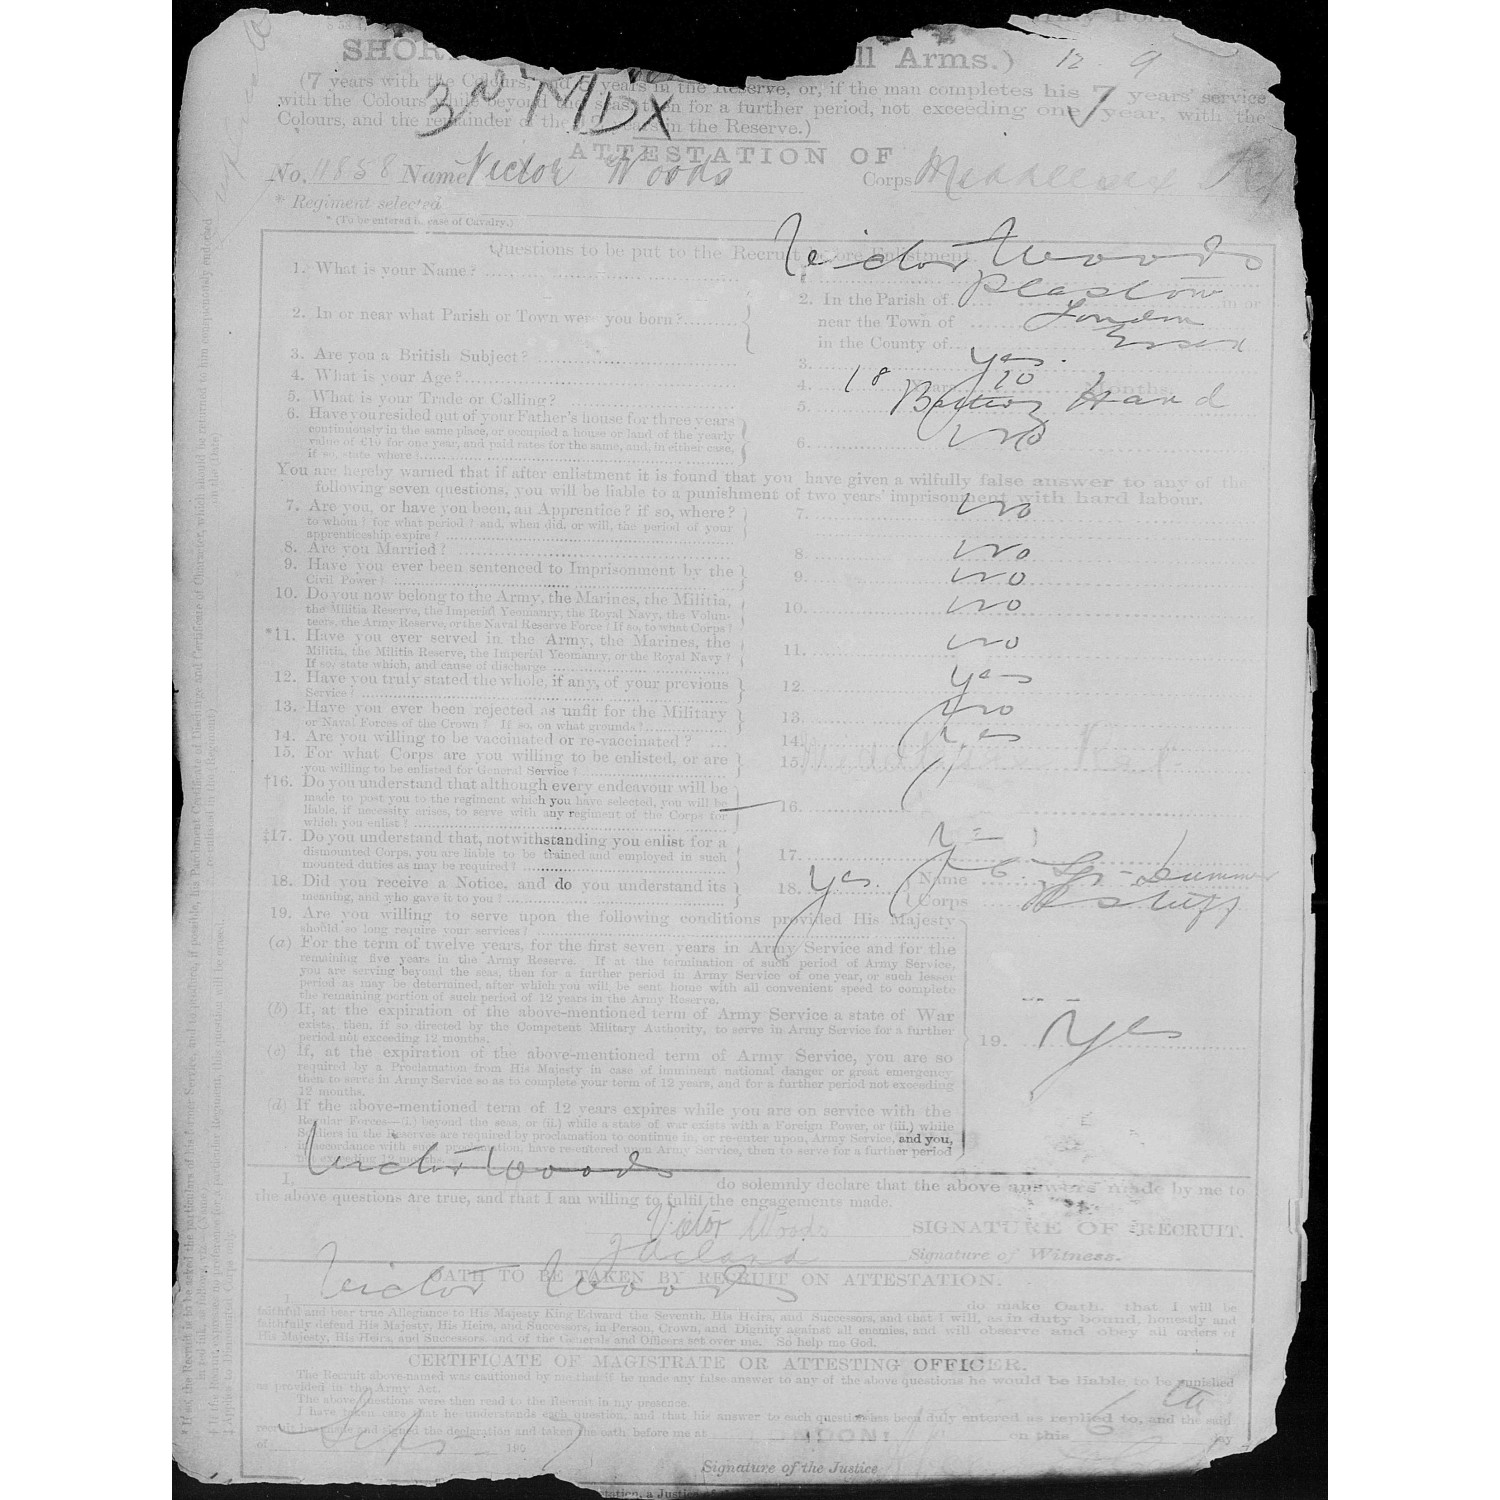 SHOR ll Arms.) 12. 9
(7 years with the Colours, and 5 years in the Reserve, or, if the man completes his 7 years' service
with the Colours while beyond the seas, then for a further period, not exceeding one year, with the
3rd MDX
Colours, and the remainder of the 12 years in the Reserve.)
ATTESTATION OF
No. 11858 Name Victor Woods Corps Middlesex
* Regiment selected
* (To be entered in case of Cavalry.)
Questions to be put to the Recruit before Enlistment.
1. What is your Name? Victor Woods
2. In or near what Parish or Town were you born? 2. In the Parish of Plastow in or
near the Town of London
in the County of Essex
3. Are you a British Subject? 3. Yes.
4. What is your Age? 4. 18 Years 10 Months.
5. What is your Trade or Calling? 5. Hand
6. Have you resided out of your Father's house for three years
continuously in the same place, or occupied a house or land of the yearly
value of £10 for one year, and paid rates for the same, and, in either case,
if so, state where? 6. No
You are hereby warned that if after enlistment it is found that you have given a wilfully false answer to any of the
following seven questions, you will be liable to a punishment of two years' imprisonment with hard labour.
7. Are you, or have you been, an Apprentice? if so, where? 7. No
to whom? for what period? and, when did, or will, the period of your
apprenticeship expire?
8. Are you Married? 8. No
9. Have you ever been sentenced to Imprisonment by the
Civil Power? 9. No
10. Do you now belong to the Army, the Marines, the Militia, 10. No
the Militia Reserve, the Imperial Yeomanry, the Royal Navy, the Volun-
teers, the Army Reserve, or the Naval Reserve Force? If so, to what Corps?
*11. Have you ever served in the Army, the Marines, the 11. No
Militia, the Militia Reserve, the Imperial Yeomanry, or the Royal Navy?
If so, state which, and cause of discharge
12. Have you truly stated the whole, if any, of your previous
Service? 12. Yes
13. Have you ever been rejected as unfit for the Military 13. No
or Naval Forces of the Crown? If so, on what grounds?
14. Are you willing to be vaccinated or re-vaccinated? 14. Yes
15. For what Corps are you willing to be enlisted, or are 15.
you willing to be enlisted for General Service?
†16. Do you understand that although every endeavour will be
made to post you to the regiment which you have selected, you will be 16.
liable, if necessity arises, to serve with any regiment of the Corps for
which you enlist?
‡17. Do you understand that, notwithstanding you enlist for a
dismounted Corps, you are liable to be trained and employed in such 17.
mounted duties as may be required?
18. Did you receive a Notice, and do you understand its 18. Yes. Name
meaning, and who gave it to you? Corps
19. Are you willing to serve upon the following conditions provided His Majesty
should so long require your services?
(a) For the term of twelve years, for the first seven years in Army Service and for the
remaining five years in the Army Reserve. If at the termination of such period of Army Service,
you are serving beyond the seas, then for a further period in Army Service of one year, or such lesser
period as may be determined, after which you will be sent home with all convenient speed to complete
the remaining portion of such period of 12 years in the Army Reserve.
(b) If, at the expiration of the above-mentioned term of Army Service a state of War
exists, then, if so directed by the Competent Military Authority, to serve in Army Service for a further
period not exceeding 12 months.
19. Yes
(c) If, at the expiration of the above-mentioned term of Army Service, you are so
required by a Proclamation from His Majesty in case of imminent national danger or great emergency
then to serve in Army Service so as to complete your term of 12 years, and for a further period not exceeding
12 months.
(d) If the above-mentioned term of 12 years expires while you are on service with the
Regular Forces—(i.) beyond the seas, or (ii.) while a state of war exists with a Foreign Power, or (iii.) while
Soldiers in the Reserves are required by proclamation to continue in, or re-enter upon, Army Service, and you,
in accordance with such proclamation, have re-entered upon Army Service, then to serve for a further period
not exceeding 12 months.
I, Victor Woods do solemnly declare that the above answers made by me to
the above questions are true, and that I am willing to fulfil the engagements made.
Victor Woods SIGNATURE OF RECRUIT.
Signature of Witness.
OATH TO BE TAKEN BY RECRUIT ON ATTESTATION.
I, Victor Woods do make Oath, that I will be
faithful and bear true Allegiance to His Majesty King Edward the Seventh, His Heirs, and Successors, and that I will, as in duty bound, honestly and
faithfully defend His Majesty, His Heirs, and Successors, in Person, Crown, and Dignity against all enemies, and will observe and obey all orders of
His Majesty, His Heirs, and Successors, and of the Generals and Officers set over me. So help me God.
CERTIFICATE OF MAGISTRATE OR ATTESTING OFFICER.
The Recruit above-named was cautioned by me that if he made any false answer to any of the above questions he would be liable to be punished
as provided in the Army Act.
The above questions were then read to the Recruit in my presence.
I have taken care that he understands each question, and that his answer to each question has been duly entered as replied to, and the said
recruit has made and signed the declaration and taken the oath before me at LONDON on this 6th day
of 190
Signature of the Justice